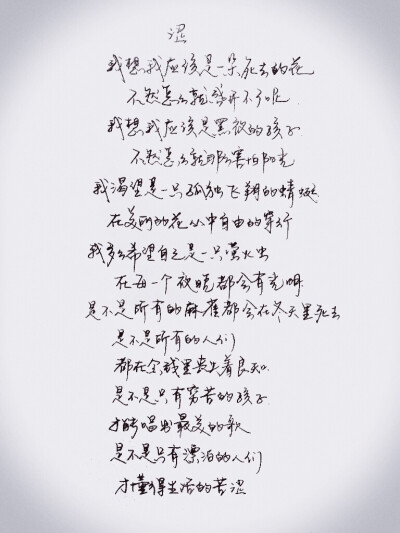 涩
我想我应该是一朵死去的花
不然怎么就盛开不了呢
我想我应该是黑夜的孩子
不然怎么就那么害怕阳光
我渴望是一只孤独飞翔的蜻蜓
在美丽的花丛中自由的穿行
我多么希望自己是一只萤火虫
在每一个夜晚都会有光明
是不是所有的麻雀都会在冬天里死去
是不是所有的人们
都在金钱里丧失着良知
是不是只有穷苦的孩子
才能唱出最美的歌
是不是只有漂泊的人们
才懂得生活的苦涩